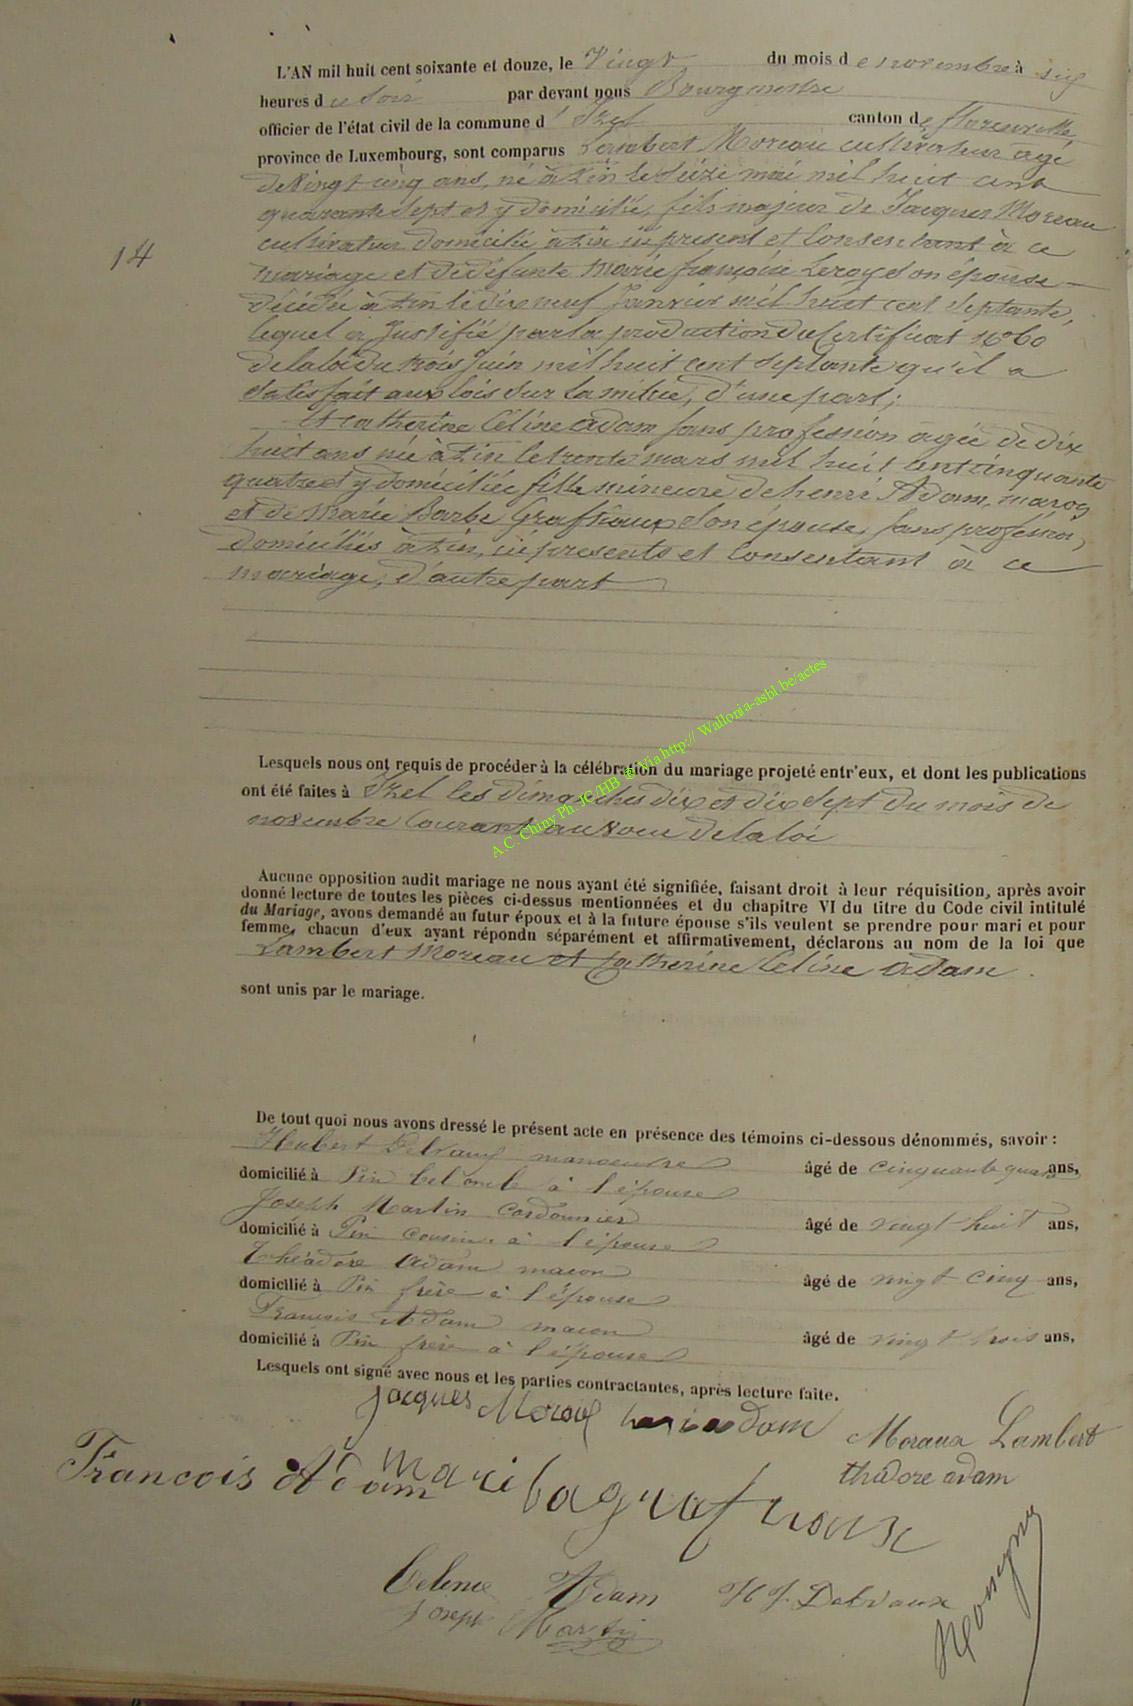 L'AN mil huit cent soixante et douze, le Vingt du mois de novembre à six
heures du soir par devant nous Bourgmestre
officier de l'état civil de la commune d'Izel canton de florenville
province de Luxembourg, sont comparus Lambert Moreau cultivateur agé
de Vingt cinq ans, né à Pin le seize mai mil huit cent
quarante sept et y domicilié, fils majeur de Jacques Moreau
cultivateur domicilié à Pin ici présent et Consentant à ce
14
mariage et de défunte Marie françoise Leroy son épouse
décédée à Pin le dix neuf Janvier mil huit cent septante,
lequel a Justifié par la production du Certificat No 60
de la loi du trois Juin mil huit cent septante qu'il a
satisfait aux lois sur la milice, d'une part;
Et Catherine Céline Adam sans profession agée de dix
huit ans née à Pin le trente mars mil huit cent cinquante
quatre et y domiciliée fille mineure de henri Adam, maçon
et de Marie Barbe Grafteaux son épouse, sans profession,
domiciliés à Pin, ici présents et Consentant à ce
mariage, d'autre part
Lesquels nous ont requis de procéder à la célébration du mariage projeté entr'eux, et dont les publications
ont été faites à Izel les dimanches dix et dix sept du mois de
novembre Courant au voeu de la loi
A.C. Chiny Ph. JC/HB © Via http:// Wallonia-asbl.be/actes
Aucune opposition audit mariage ne nous ayant été signifiée, faisant droit à leur réquisition, après avoir
donné lecture de toutes les pièces ci-dessus mentionnées et du chapitre VI du titre du Code civil intitulé
du Mariage, avons demandé au futur époux et à la future épouse s'ils veulent se prendre pour mari et pour
femme, chacun d'eux ayant répondu séparément et affirmativement, déclarons au nom de la loi que
Lambert Moreau et Catherine Céline Adam
sont unis par le mariage.
De tout quoi nous avons dressé le présent acte en présence des témoins ci-dessous dénommés, savoir :
Hubert Delvaux manoeuvre âgé de cinquante quatre ans,
domicilié à Pin bel oncle à l'épouse
Joseph Martin Cordonnier âgé de vingt huit ans,
domicilié à Pin cousin à l'épouse
Théodore Adam macon âgé de vingt cinq ans,
domicilié à Pin frère à l'épouse
François Adam macon âgé de vingt trois ans,
domicilié à Pin frère à l'épouse
Lesquels ont signé avec nous et les parties contractantes, après lecture faite.
Jacques Adam Moraux Lambert
Francois Adam Mari thédore adam
Celine Adam H J Delvaux
Joseph Martin